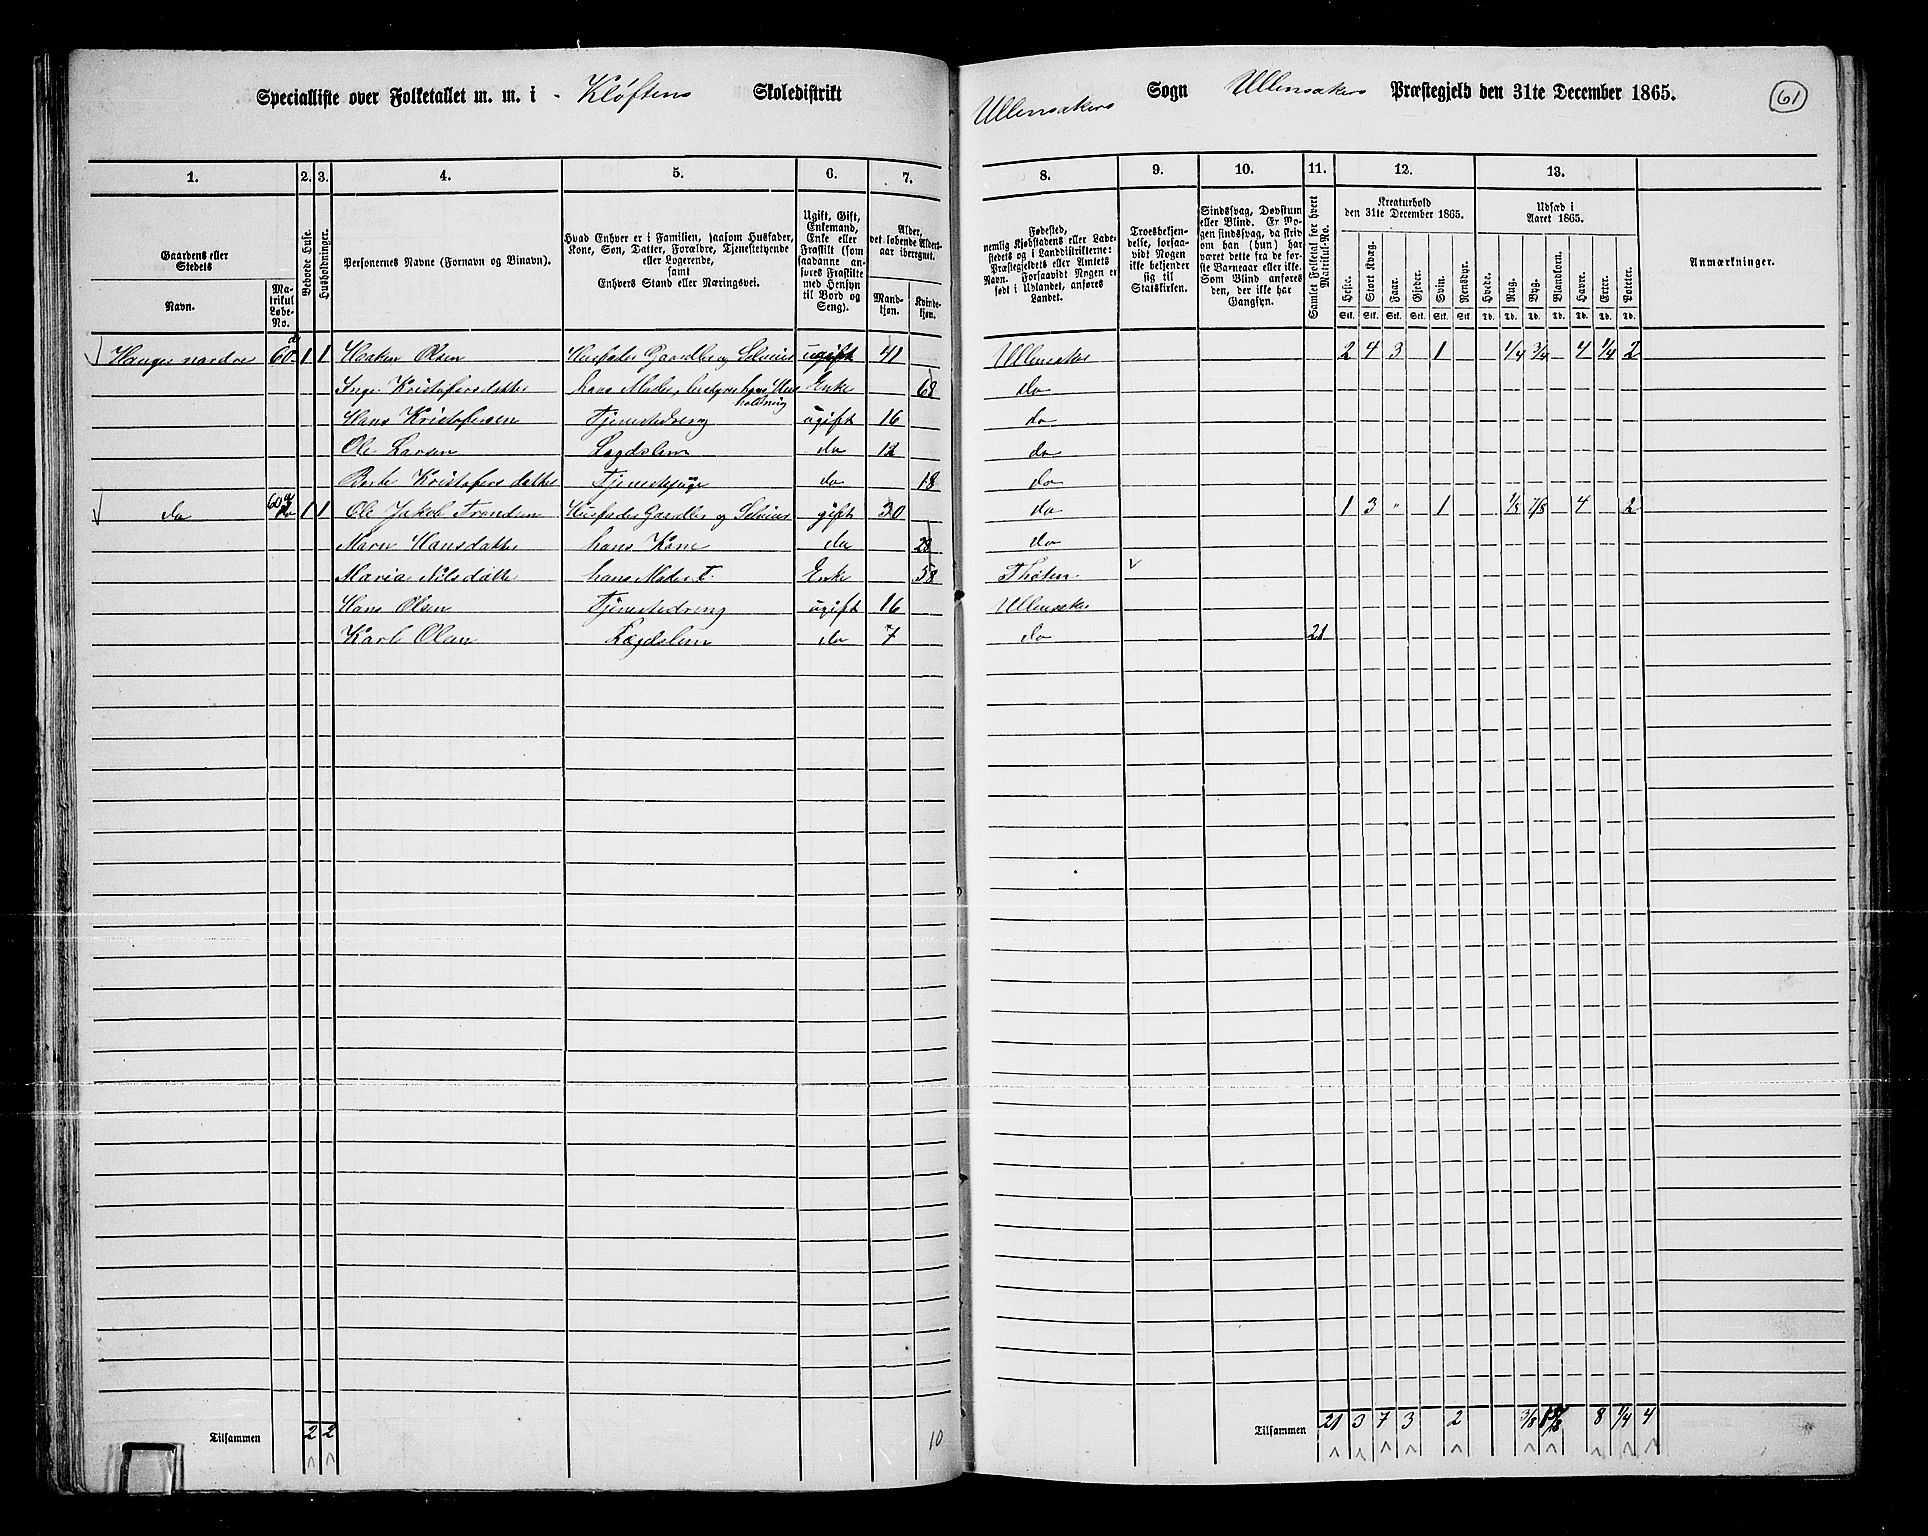 Specialliste over Folketallet m. m. i Kløftens Skoledistrikt
Ullensakers Sogn Ullensakers Præstegjeld den 31te December 1865.
61
1. 2. 3. 4. 5. 6. 7. 8. 9. 10. 11. 12. 13.
Gaardens eller Stedets
Navn.
Matrikul Løbe-No.
Beboede Huse.
Husholdninger.
Personernes Navne (Fornavn og Binavn).
Hvad Enhver er i Familien, saasom Husfader, Kone, Søn, Datter, Forældre, Tjenestetyende eller Logerende,
samt
Enhvers Stand eller Næringsvei.
Ugift, Gift, Enkemand, Enke eller Fraskilt (som saadanne anføres Fraskilte med Hensyn til Bord og Seng).
Alder, det løbende Aldersaar iberegnet.
Mandkjøn.
Kvindekjøn.
Fødested, nemlig Kjøbstadens eller Ladestedets og i Landdistrikterne: Præstegjeldets eller Amtets Navn. Forsaavidt Nogen er født i Udlandet, anføres Landet.
Troesbekjendelse, forsaavidt Nogen ikke bekjender sig til Statskirken.
Sindssvag, Døvstum eller Blind. Er Nogen sindssvag, da skrives om han (hun) har været dette fra de første Barneaar eller ikke. Som Blind anføres den, der ikke har Gangsyn.
Samlet Folketal for hvert Matrikul-No.
Kreaturhold den 31te December 1865.
Heste. Stort Kvæg. Faar. Gjeder. Svin. Rensdyr.
Stk. Stk. Stk. Stk. Stk. Stk.
Udsæd i Aaret 1865.
Hvede. Rug. Byg. Blandkorn. Havre. Erter. Poteter.
Td. Td. Td. Td. Td. Td. Td.
Anmærkninger.
Hauger nordre 60 1 1 Haaken Olsen Husfader Gaardbr og Selveier ugift 41 Ullensaker 2 4 3 1 1/4 3/4 4 1/4 2
Inge Kristofersdatter hans Moder, bestyrer hans Husholdning Enke 68 do
Hans Kristofersen Tjenestedreng ugift 16 do
Ole Larsen Lægdslem do 12 do
Berte Kristofersdatter Tjenestepige do 18 do
do 60 1 1 Ole Jakob Trondsen Husfader Gaardbr og Selveier gift 30 do 1 3 " 1 1/8 7/8 4 2
Maren Hansdatter hans Kone do 28 do
Maria Nilsdatter hans Moder F. Enke 58 Thoten
Hans Olsen Tjenestedreng ugift 16 Ullensaker
Karl Olsen Lægdslem do 7 do 21
Tilsammen 2 2 10
Tilsammen 21 3 7 3 2 3/8 8 1/4 4